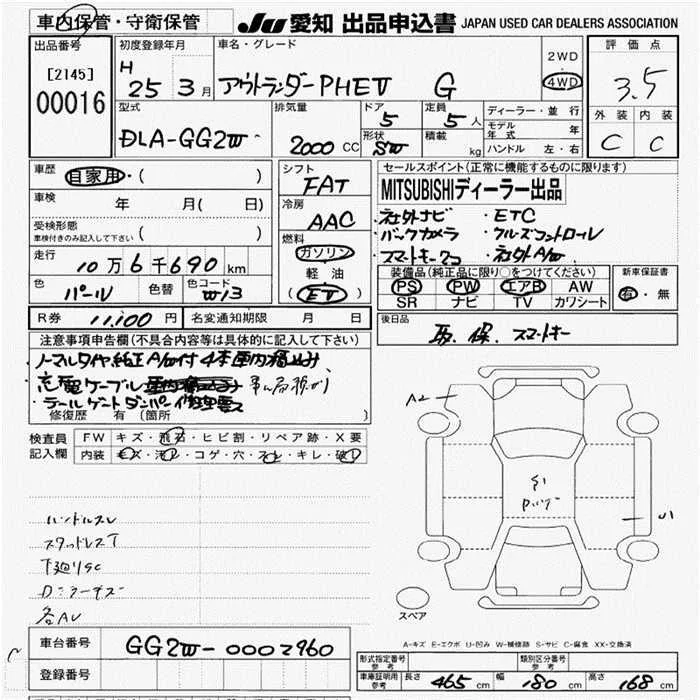 車内保管・守衛保管
JU 愛知 出品申込書 JAPAN USED CAR DEALERS ASSOCIATION
出品番号
[2145]
00016
初度登録年月
H 25 3月
車名・グレード
アウトランダーPHEV G
2WD
・
4WD
評価点
3.5
外装 内装
C C
型式
DLA-GG2W
排気量
2000 CC
ドア
5
定員
5人
形状
SW
積載
kg
ディーラー・並行
モデル年式 年
ハンドル 左・右
車歴
自家用・( )
車検 年 月( 日)
受検形態
車検付きのみ記入して下さい ( )
走行
10万6千690km
色
パール
色替
色コード
W13
シフト
FAT
冷房
AAC
燃料
ガソリン
軽油
(EV)
R券 11,100円
名変通知期限 月 日
セールスポイント(正常に機能するものに限ります)
MITSUBISHIディーラー出品
・社外ナビ ・ETC
・バックカメラ ・クルーズコントロール
・スマートキー2コ ・社外A/W
装備品(純正品に限り○をつけてください)
PS PW エアB AW
SR ナビ TV カワシート
新車保証書
有・無
後日品
取.保.スマートキー
注意事項申告欄(不具合内容等は具体的に記入して下さい)
・ノーマルタイヤ純正A/W付4本車内積込み
・充電ケーブル
・テールゲートダンパー修理要ス
修復歴 有(箇所 )
検査員
記入欄
FW キズ・飛石・ヒビ割・リペア跡・X要
内装 キズ・汚レ・コゲ・穴・スレ・キレ・破レ
ハンドルスレ
スタッドレスT
下廻りSC
A2
U1
スペア
A-キズ E-エクボ U-凹み W-補修跡 S-サビ C-腐食 XX-交換済
車台番号
GG2W-0002960
登録番号
形式指定番号
参考
類別区分番号
参考
車庫証明用
参考
長さ 465cm 幅 180cm 高さ 168cm